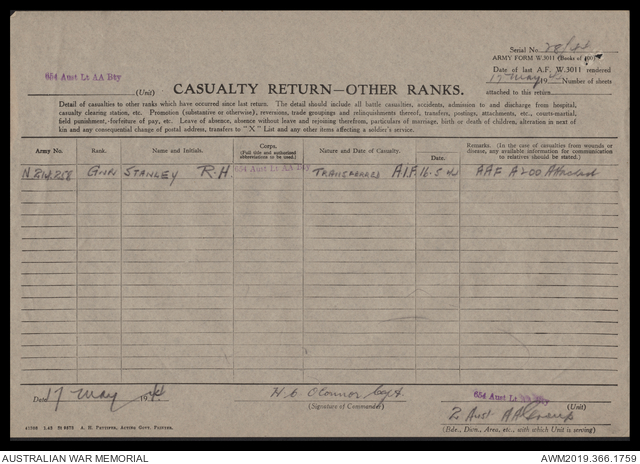 Serial No. 28/44
ARMY FORM W.3011 (Books of 100)
Date of last A.F. W.3011 rendered
17 May 194 Number of sheets
attached to this return
654 Aust Lt AA Bty
(Unit)
CASUALTY RETURN—OTHER RANKS.
Detail of casualties to other ranks which have occurred since last return. The detail should include all battle casualties, accidents, admission to and discharge from hospital,
casualty clearing station, etc. Promotion (substantive or otherwise), reversions, trade groupings and relinquishments thereof, transfers, postings, attachments, etc., courts-martial,
field punishment, forfeiture of pay, etc. Leave of absence, absence without leave and rejoining therefrom, particulars of marriage, birth or death of children, alteration in next of
kin and any consequential change of postal address, transfers to "X" List and any other items affecting a soldier's service.
Army No. Rank. Name and Initials. Corps. (Full title and authorized abbreviations to be used.) Nature and Date of Casualty. Date. Remarks. (In the case of casualties from wounds or disease, any available information for communication to relatives should be stated.)
N214258 GNR STANLEY R.H. 654 Aust Lt AA Bty TRANSFERRED A.I.F. 16.5.44 AAF A200 Attached
Date 17 May 1944
H. C. O'Connor Capt.
(Signature of Commander)
654 Aust Lt AA Bty
(Unit)
2 Aust AA Group
(Bde., Divn., Area, etc., with which Unit is serving)
A. H. Pettifer, Acting Govt. Printer.
AUSTRALIAN WAR MEMORIAL
AWM2019.366.1759